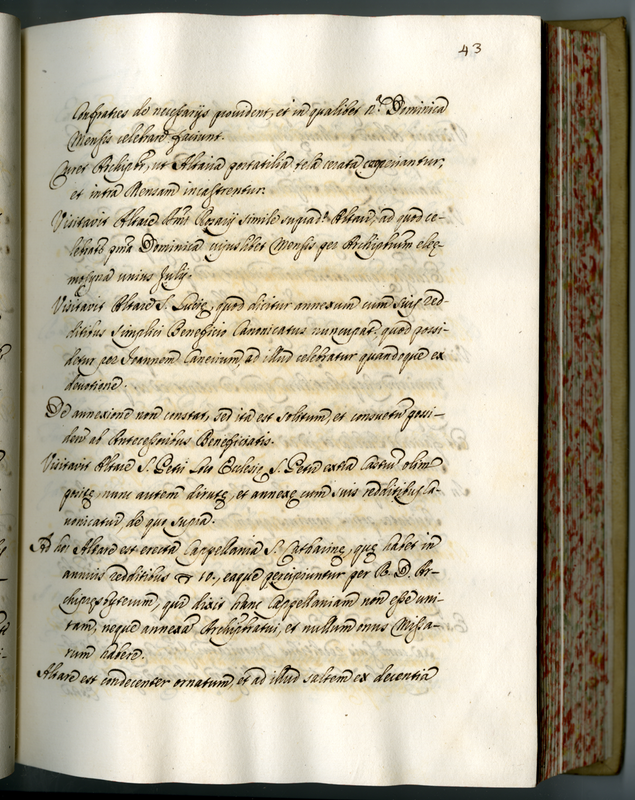 43
Confratres de necessarijs provident, et in qualibet p.ª Dominica
Mensis celebrare faciunt.
Curet Archipbr, ut Altaria portatilia tela cerata cooperiantur,
et intra Mensam incastrentur.
Visitavit Altare Ss.mi Rosarij simile suprad.º Altari, ad quod ce-
lebratr pma Dominica cujuslibet Mensis per Archipbrum elee-
mosyna unius Julij.
Visitavit Altare S. Lucie, quod dicitur annexum cum suis red-
ditibus simplici Beneficio Canonicatus nuncupat. quod possi-
detur per Joannem, ad illud celebratur quandoque ex
devotione.
De annexione non constat, sed ita est solitum, et consuetu possi-
deri ab Antecessoribus Beneficiatis.
Visitavit Altare S. Petri loco Ecclesie S. Petri extra Castru olim
posite, nunc autem dirute, et annexe cum suis redditibus Ca-
nonicatui, de quo supra.
Ad hoc Altare est erecta Cappellania S. Catharine, que habet in
annuis redditibus 10., eaque percipiuntur per R. D. Ar-
chipresbyterum, qui dixit hanc Cappellaniam non esse uni-
tam, neque annexa Archipbratui, et nullum onus Missa-
rum habere.
Altare est condecenter ornatum, et ad illud saltem ex decentia